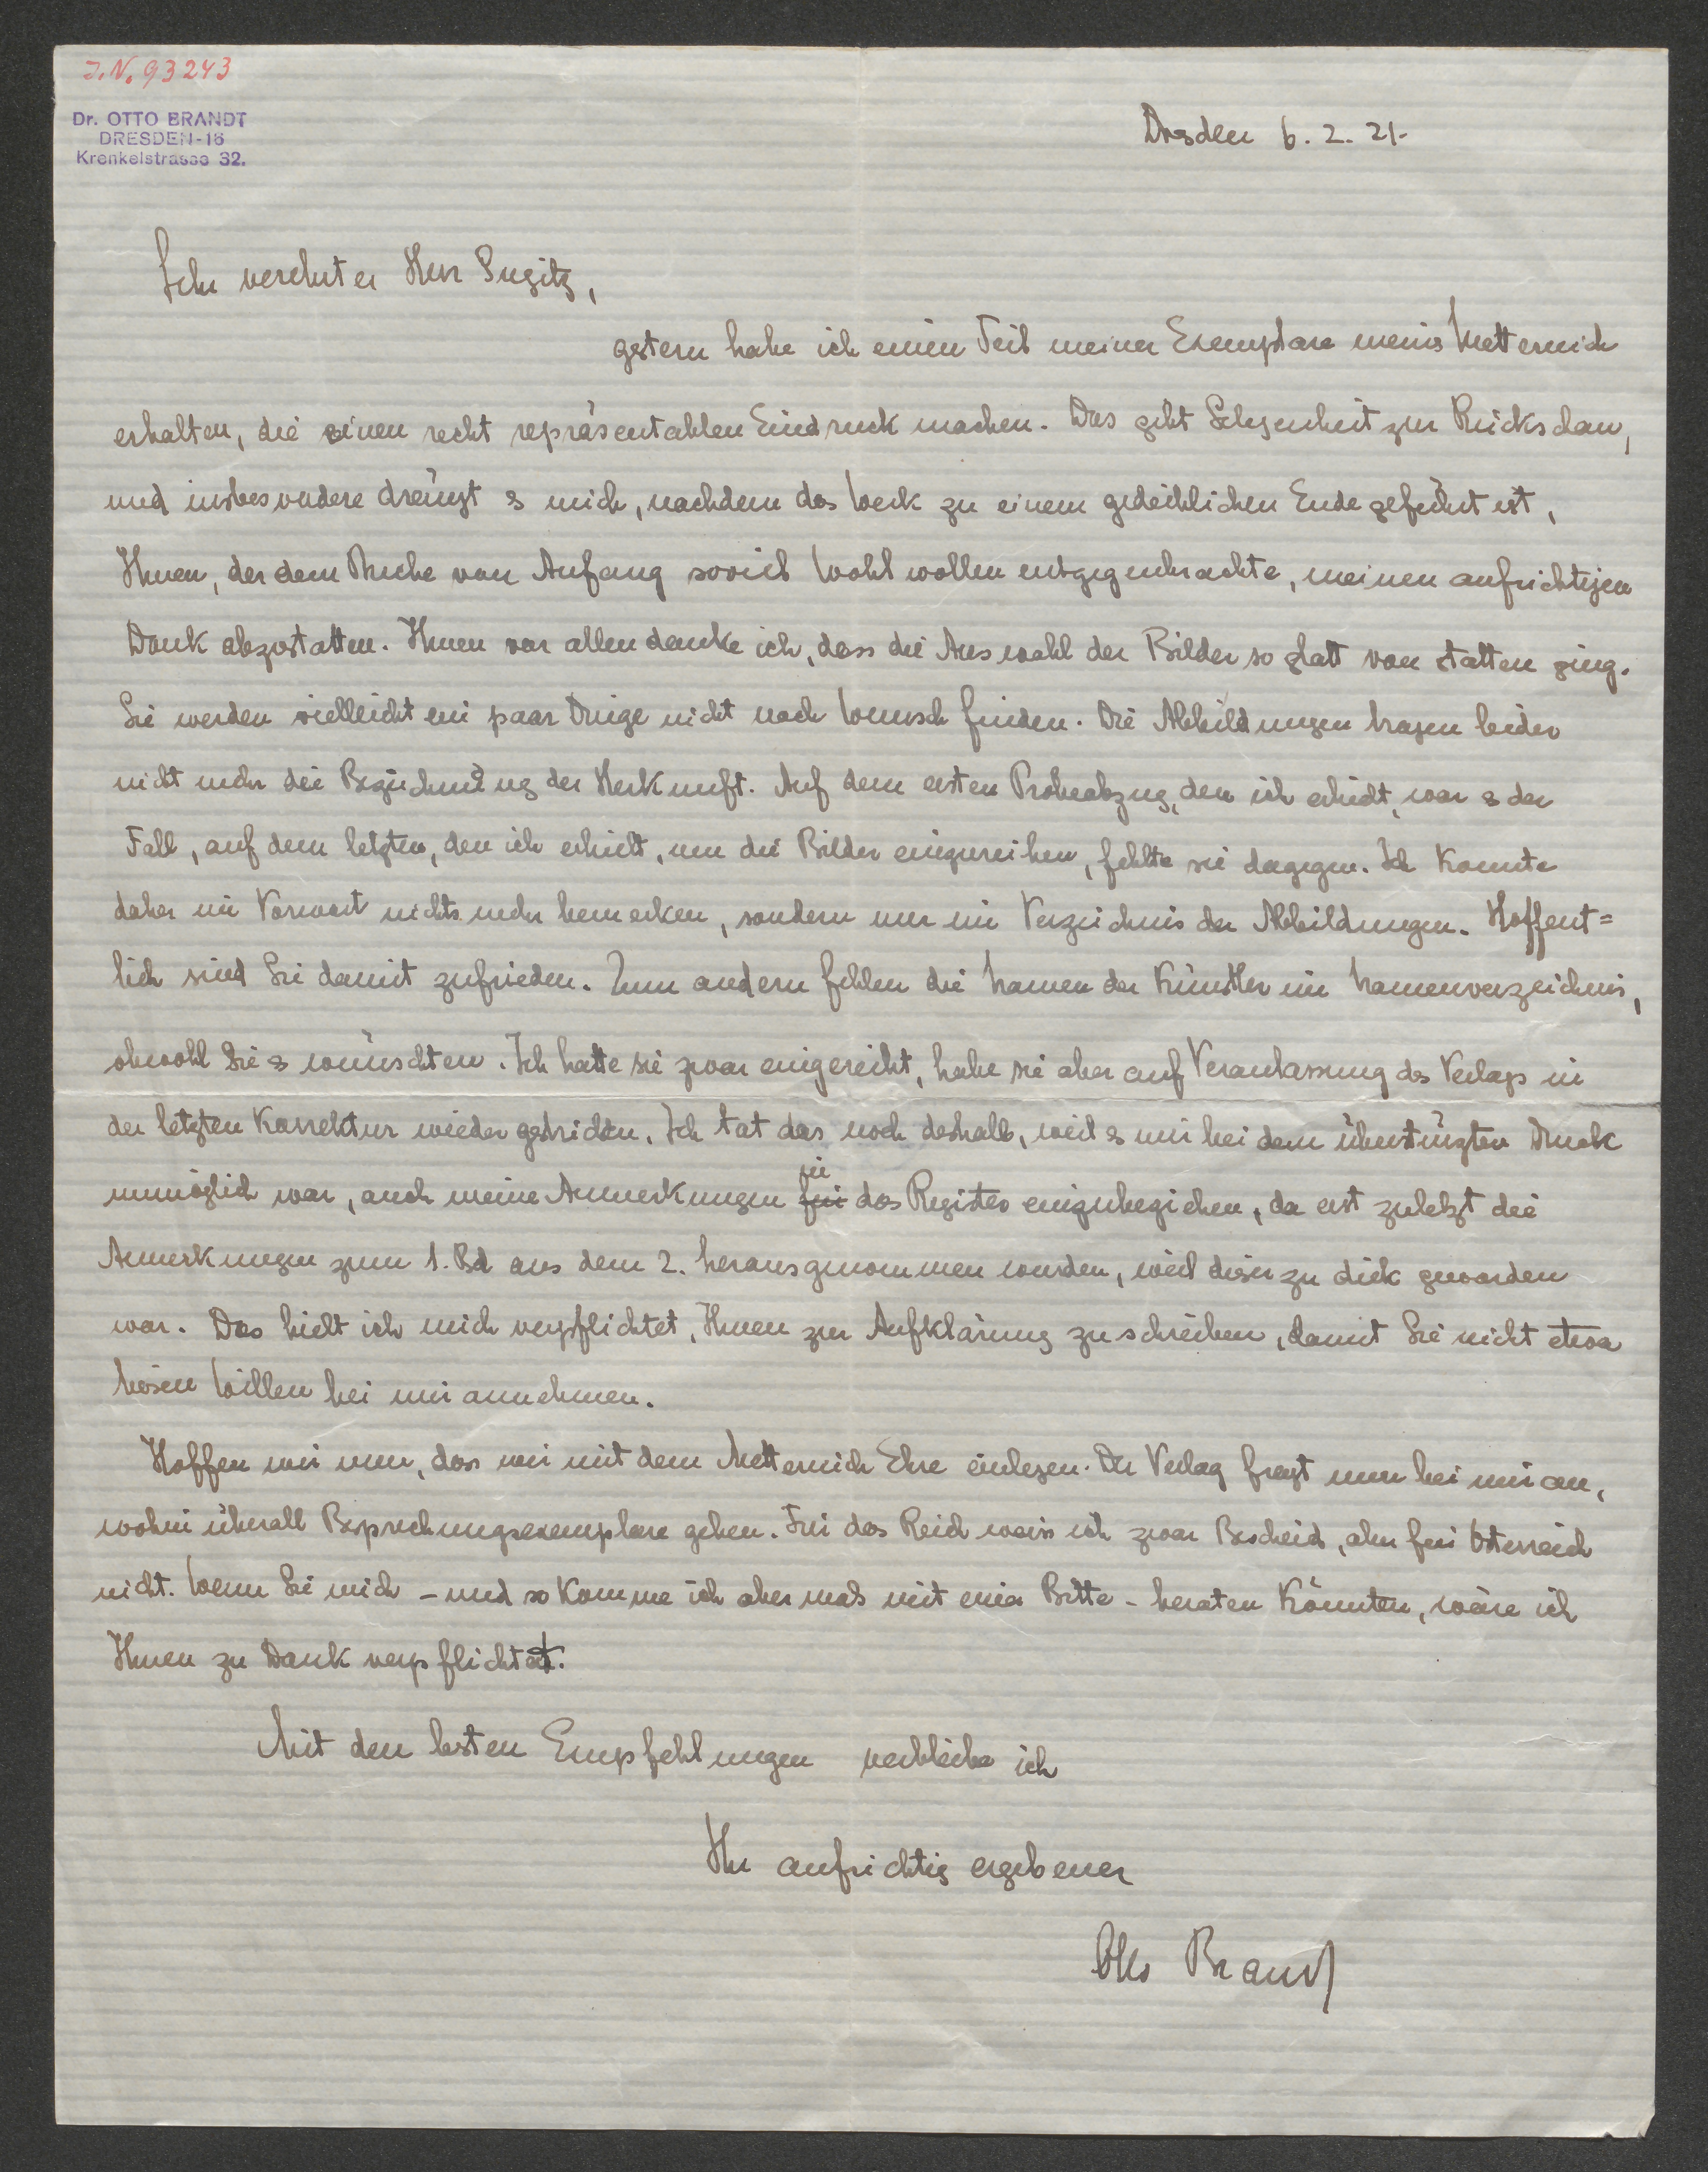 I.N. 93243
Dr. OTTO BRANDT
DRESDEN-16
Krenkelstrasse 32.
Dresden 6. 2. 21.
Sehr verehrter Herr Gugitz,
gestern habe ich einen Teil meiner Exemplare meines Metternich
erhalten, die einen recht repräsentablen Eindruck machen. Das gibt Gelegenheit zur Rückschau,
und insbesondere drängt es mich, nachdem das Werk zu einem gedeihlichen Ende geführt ist,
Ihnen, der dem Buche von Anfang soviel Wohlwollen entgegenbrachte, meinen aufrichtigen
Dank abzustatten. Ihnen vor allen danke ich, dass die Auswahl der Bilder so glatt von statten ging.
Sie werden vielleicht ein paar Dinge nicht nach Wunsch finden. Die Abbildungen tragen leider
nicht mehr die Bezeichnung der Herkunft. Auf dem ersten Probeabzug, den ich erhielt, war es der
Fall, auf dem letzten, den ich erhielt, um die Bilder einzureihen, fehlte sie dagegen. Ich konnte
daher im Vorwort nichts mehr bemerken, sondern nur im Verzeichnis der Abbildungen. Hoffent=
lich sind Sie damit zufrieden. Zum andern fehlen die Namen der Künstler im Namenverzeichnis,
obwohl Sie es wünschten. Ich hatte sie zwar eingereiht, habe sie aber auf Veranlassung des Verlags in
der letzten Korrektur wieder gestrichen. Ich tat das noch deshalb, weil es mir bei dem überstürzten Druck
unmöglich war, auch meine Anmerkungen für in das Register einzubeziehen, da erst zuletzt die
Anmerkungen zum 1. Bd aus dem 2. herausgenommen wurden, weil dieser zu dick geworden
war. Das hielt ich mich verpflichtet, Ihnen zur Aufklärung zu schreiben, damit Sie nicht etwa
bösen Willen bei mir annehmen.
Hoffen wir nun, dass wir mit dem Metternich Ehre einlegen. Der Verlag fragt nun bei mir an,
wohin überall Besprechungsexemplare gehen. Für das Reich weiss ich zwar Bescheid, aber für Österreich
nicht. Wenn Sie mich - und so komme ich abermals mit einer Bitte - beraten könnten, wäre ich
Ihnen zu Dank verpflichtet.
Mit den besten Empfehlungen verbleibe ich
Ihr aufrichtig ergebener
Otto Brandt